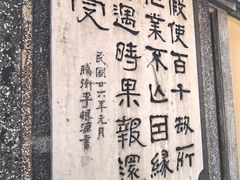 假使百千劫所
作業不亡因緣
遇時果報還
受
民國廿六年元月
騰衝李根源書